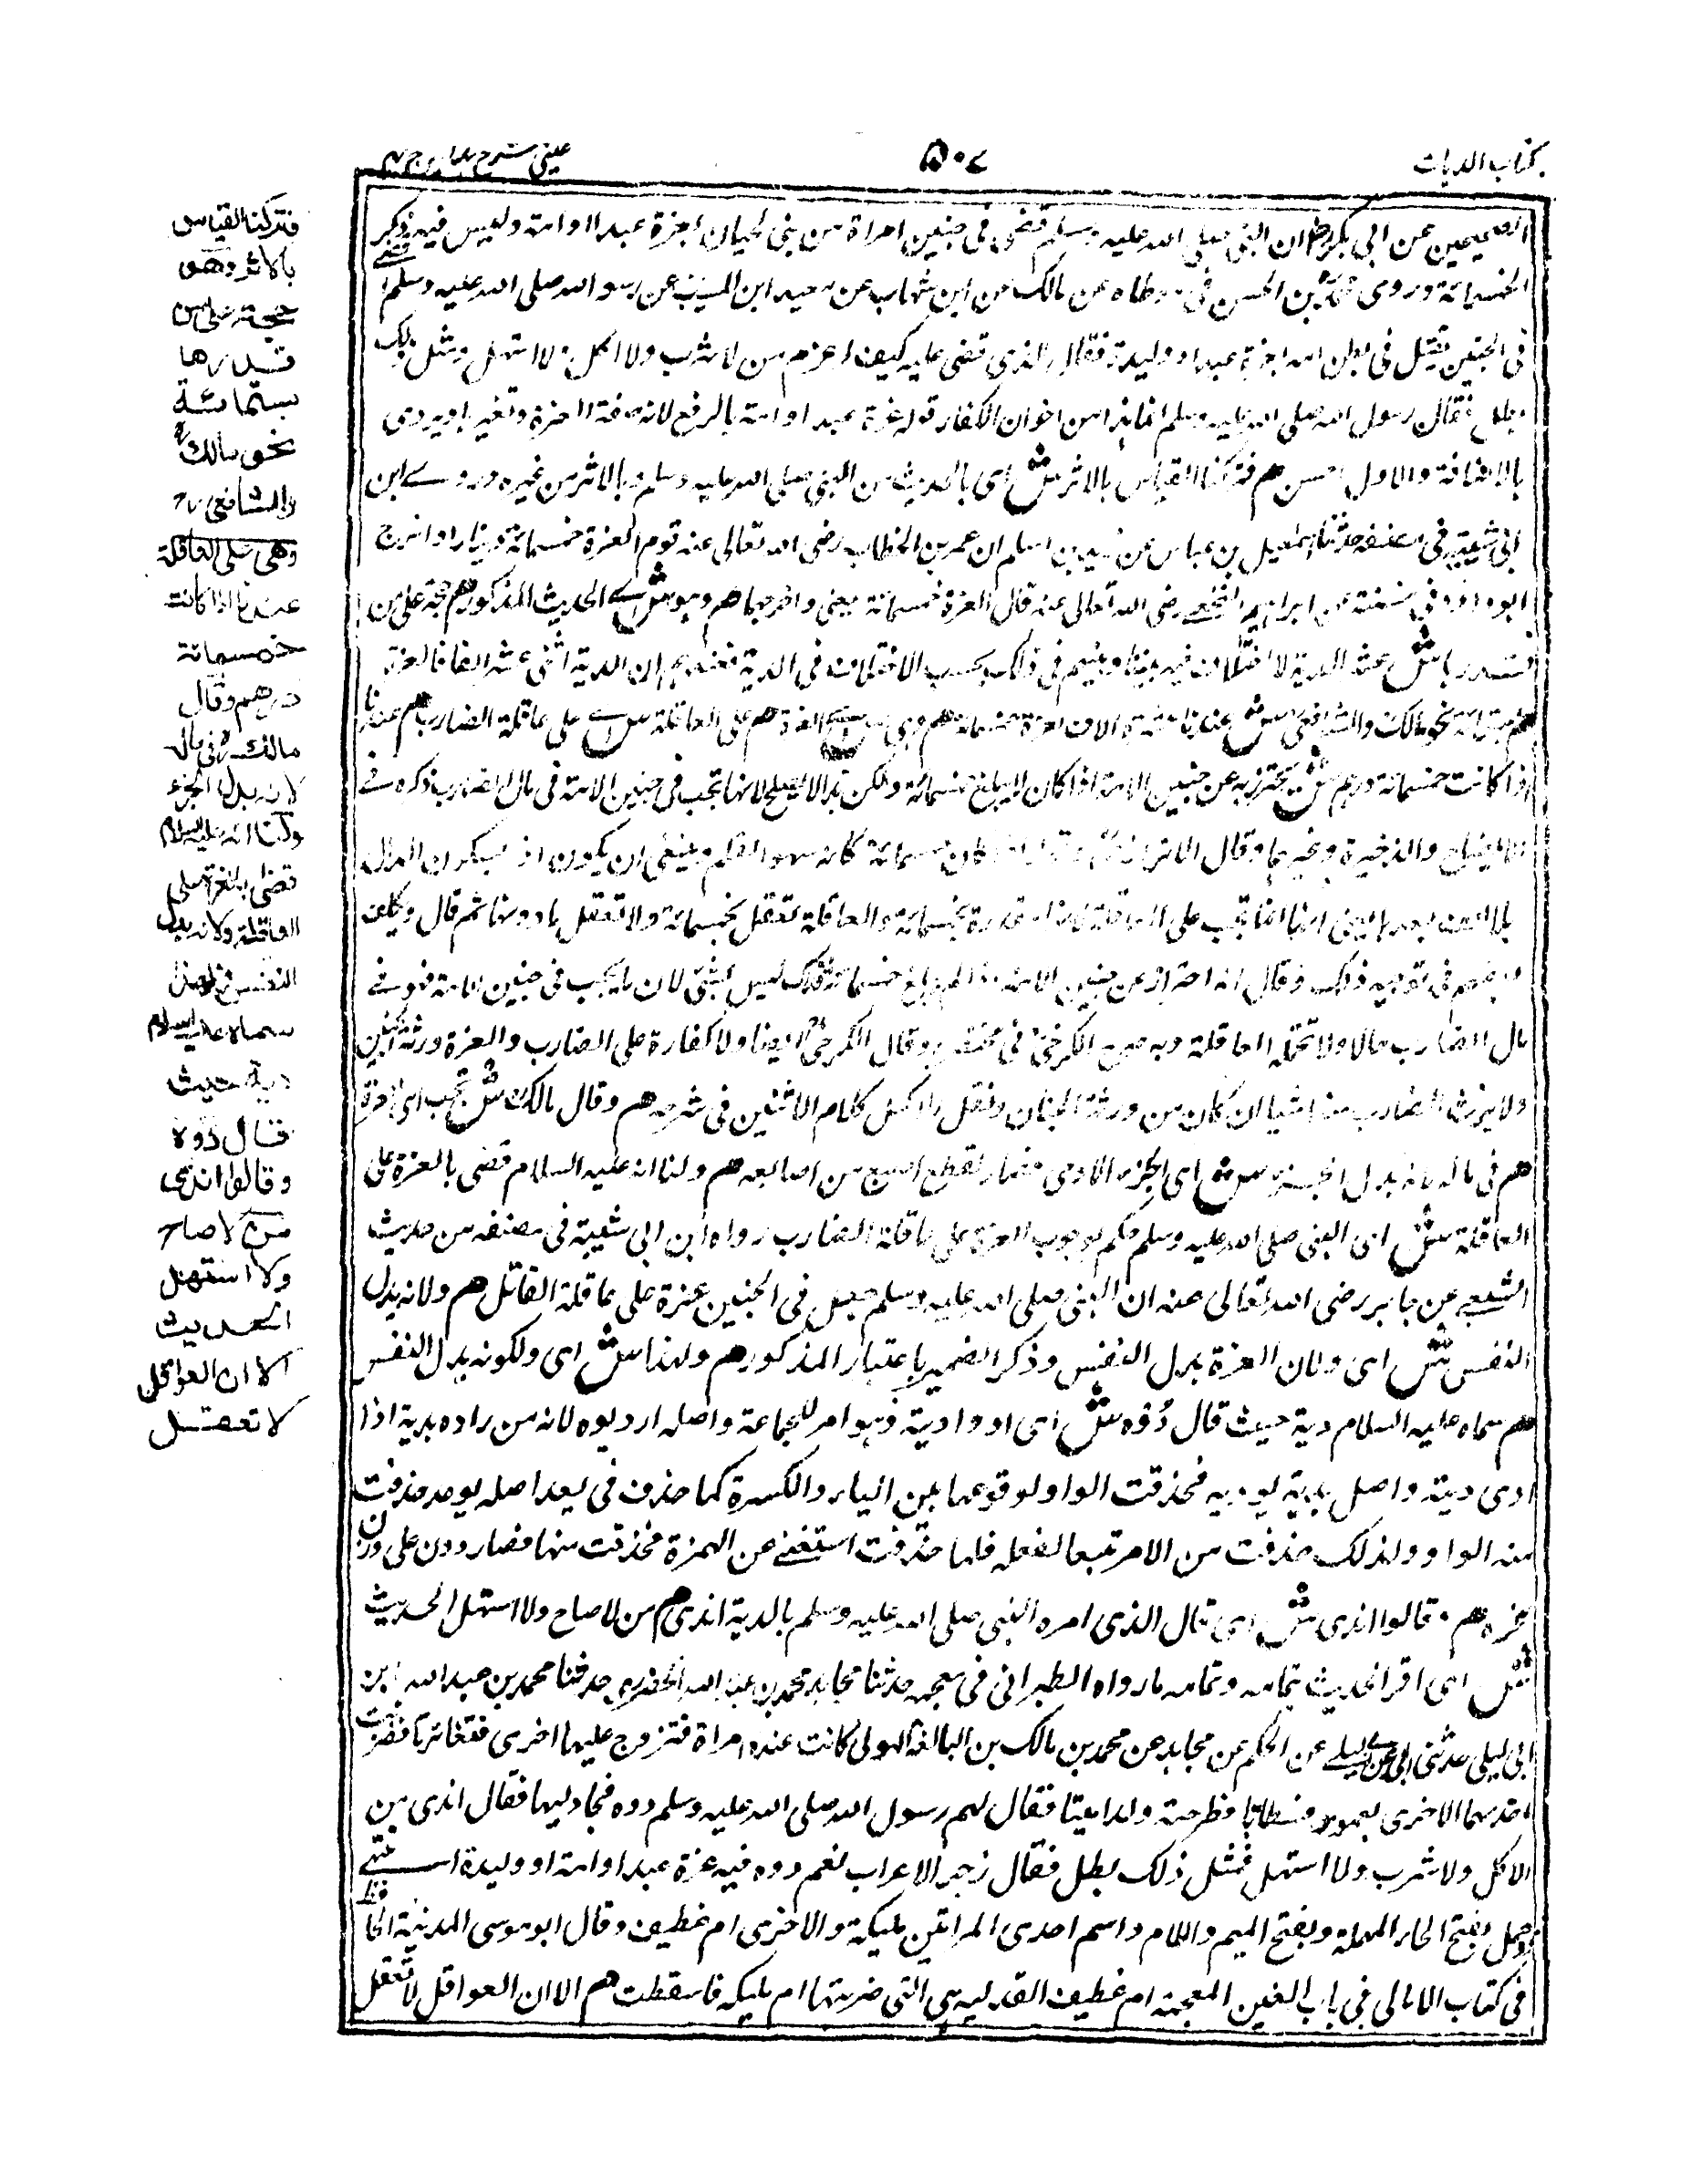 كتاب الديات
٥٠٧
عينى شرح هدايه ج ٤
الصحيحين عن ابى ان النبى صلى الله عليه وسلم قضى فى جنين امراة من بنى لحيان بغرة عبد او امة وليس فيه ذكر
الخمسمائة وروى محمد بن الحسن فى موطاه عن مالك عن ابن شهاب عن سعيد ابن المسيب عن رسول الله صلى الله عليه وسلم
فى الجنين يقتل فى بطن امه بغرة عبد او وليدة فقال الذى قضى عليه كيف اغرم من لا شرب ولا اكل ولا استهل ومثل ذلك
يطل فقال رسول الله صلى الله عليه وسلم انما هذا من اخوان الكفار قوله غرة عبد او امة بالرفع لانه صفة الغرة وتغير ويروى
بالاضافة والاول احسن هم فتركنا القياس بالاثر ش اى بالحديث من النبى صلى الله عليه وسلم وبالاثر من غيره وروى ابن
ابى شيبة فى مصنفه حدثنا اسمعيل بن عياش عن زيد بن اسلم ان عمر بن الخطاب رضى الله تعالى عنه قوم الغرة خمسمائة دينارا واخرج
ابو داود فى سننه عن ابراهيم النخعى رضى الله تعالى عنه قال الغرة خمسمائة يعنى درهما هم وهو ش اى الحديث المذكور هم حجة على من
قدرها ش عشر الدية لا اختلاف فيه بيننا وبينهم فى ذلك بحسب الاختلاف فى الدية فعندهم ان الدية اثنى عشر الفا فالغرة
هم بستمائة نحو مالك والشافعى ش عندنا عشرة الاف الغرة خمسمائة هم وهى ش اى الغرة هم على العاقلة ش اى على عاقلة الضارب هم عندنا
اذا كانت خمسمائة درهم ش يحترز به عن جنين الامة اذا كان لا يبلغ خمسمائة ولكن هذا لا يصلح لانها تجب فى جنين الامة فى مال الضارب ذكره فى
الايضاح والذخيرة وغيرهما وقال الاترازى كان خمسمائة كانه سهو القلم وينبغى ان يكون اذ بسكون الذال
بلا الف بعدها يعنى انها انما تجب على العاقلة لانها مقدرة بخمسمائة والعاقلة تعقل بخمسمائة ولا تعقل ما دونها ثم قال وتكلف
بعضهم فى توجيه ذلك وقال انه احتراز عن جنين الامة اذا لم يبلغ خمسمائة وذلك ليس بشئ لان ما يجب فى جنين الامة فهو فى
مال الضارب حالا ولا تحمله العاقلة وبه صرح الكرخى فى مختصره وقال الكرخى ايضا ولا كفارة على الضارب والغرة ورثة الجنين
ولا يرث الضارب منها شيا ان كان من ورثة الجنين ونقل الاكمل كلام الاثنين فى شرحه هم وقال مالك ش تجب اى الغرة
هم فى ماله لانه بدل الجزء ش اى الجزء الادمى فصار كقطع اصبع من اصابعه هم ولنا انه عليه السلام قضى بالغرة على
العاقلة ش اى النبى صلى الله عليه وسلم حكم بوجوب الغرة على عاقلة الضارب رواه ابن ابى شيبة فى مصنفه من حديث
الشعبى عن جابر رضى الله تعالى عنه ان النبى صلى الله عليه وسلم جعل فى الجنين غرة على عاقلة القاتل هم ولانه بدل
النفس ش اى ولان الغرة بدل النفس وذكر الضمير باعتبار المذكور هم ولهذا ش اى ولكونه بدل النفس
هم سماه عليه السلام دية حيث قال دُوْه ش اى ادوا ديته وهو امر للجماعة واصله اوديوه لانه من وداه يديه اذا
ادى ديته واصل يديه يوديه فحذفت الواو لوقوعها بين الياء والكسرة كما حذف فى يعد اصله يوعد حذفت
منه الواو ولذلك حذفت من الامر تبعا لفعله فلما حذفت استغنى عن الهمزة فحذفت منها فصار دون على وزن
هم وقالوا اندى ش اى قال الذى امره النبى صلى الله عليه وسلم بالدية اندى هم من لا صاح ولا استهل الحديث
ش اى اقرا الحديث بتمامه وتمامه ما رواه الطبرانى فى معجمه حدثنا محمد بن عبد الله الحضرمى حدثنا محمد بن عبد الله ابن
ابى ليلى حدثنى ابى عن ابن ابى ليلى عن الحكم عن مجاهد عن محمد بن مالك بن النابغة الهذلى كانت عنده امراة فتزوج عليها اخرى فتغائرتا فضربت
احدهما الاخرى بعمود فسطاط فطرحت ولدا ميتا فقال لهم رسول الله صلى الله عليه وسلم دوه فجاء وليها فقال اندى من
لا اكل ولا شرب ولا استهل فمثل ذلك يطل فقال رجز الاعراب نعم دوه فيه غرة عبد او امة او وليدة انتهى
وحمل بفتح الحاء المهملة وبفتح الميم واللام واسم احدى المراتين مليكة والاخرى ام غطيف وقال ابو موسى المدنية الحافظ
فى كتاب الامالى فى باب الغين المعجمة ام غطيف الهذلية هى التى ضربتها ام مليكه فاسقطت هم الا ان العواقل لا تعقل
فتركنا القياس
بالاثر وهو
حجة على من
قدرها
بستمائة
نحو مالك
والشافعى رح
وهى على العاقلة
عندنا اذا كانت
خمسمائة
درهم وقال
مالك فى ماله
لانه بدل الجزء
ولنا انه عليه السلام
قضى بالغرة على
العاقلة ولانه بدل
النفس ولهذا
سماه عليه السلام
دية حيث
قال دوه
وقالوا اندى
من لا صاح
ولا استهل
الحديث
الا ان العواقل
لا تعقل